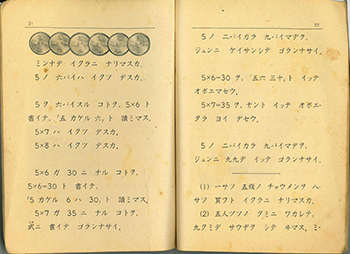 21
ミンナデ イクラニ ナリマスカ。
5ノ 六バイハ イクツ デスカ。
5ヲ 六バイスル コトヲ、5×6ト
書イテ、「五 カケル 六」ト 讀ミマス。
5×7 ハ イクツ デスカ。
5×8 ハ イクツ デスカ。
5×6 ガ 30 ニ ナル コトヲ、
5×6=30 ト 書イテ、
「5 カケル 6 ハ 30」ト 讀ミマス。
5×7 ガ 35 ニ ナル コトヲ、
式ニ 書イテ ゴランナサイ。
22
5ノ 二バイカラ 九バイマデヲ、
ジュンニ ケイサンシテ ゴランナサイ。
5×6=30 ヲ、「五六 三十」ト イッテ
オボエマセウ。
5×7=35 ヲ、 ト イッテ オボエ
タラ ヨイ デセウ。
5ノ 二バイカラ 九バイマデヲ、
ジュンニ 九九デ イッテ ゴランナサイ。
(1) 一サツ 五錢ノ チャウメンヲ 八
サツ 買フト イクラニ ナリマスカ。
(2) 五人ヅツノ クミニ ワカレテ、
九クミデ サウギヲ シテ ヰマス。ミ-